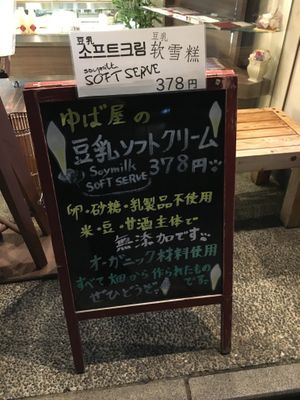 豆乳 豆乳
소프트크림 软雪糕
soymilk
SOFT SERVE 378円
ゆば屋の
豆乳ソフトクリーム
Soymilk 378円
SOFT SERVE
卵・砂糖・乳製品不使用
米・豆・甘酒主体で
無添加です
オーガニック材料使用
すべて畑から作られたもの
です。
ぜひどうぞ。